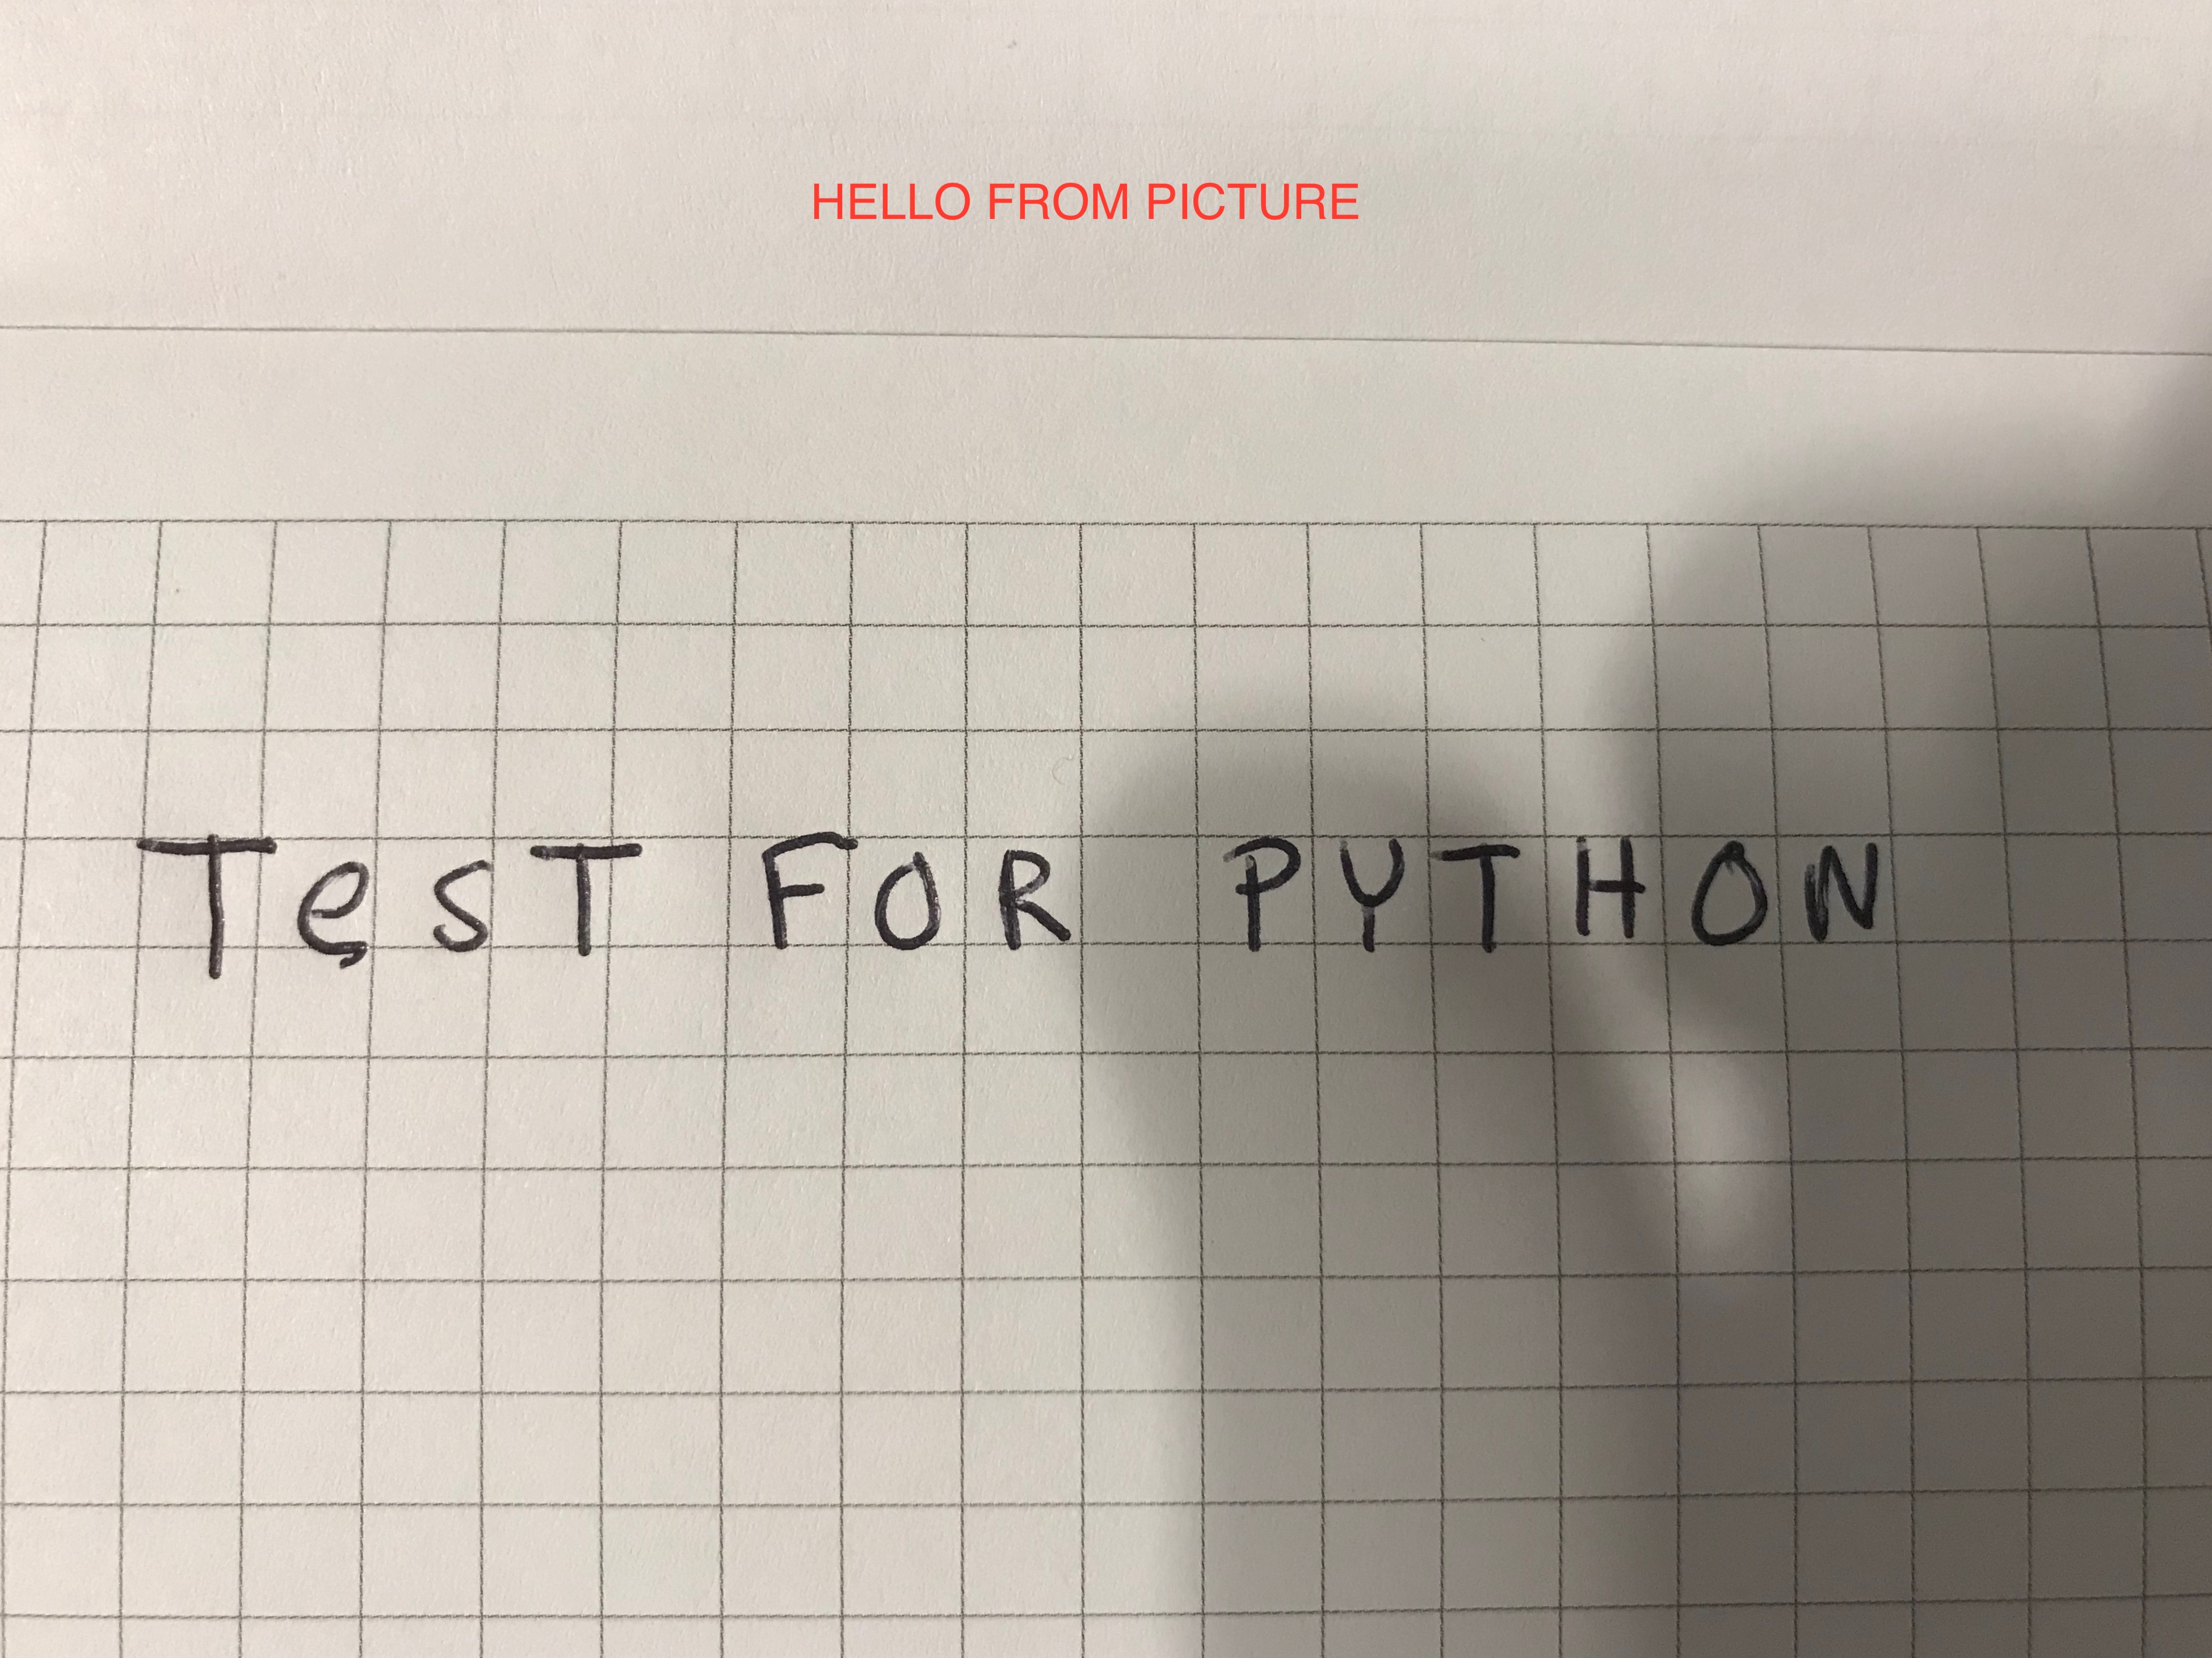 HELLO FROM PICTURE
TesT FOR PYTHON